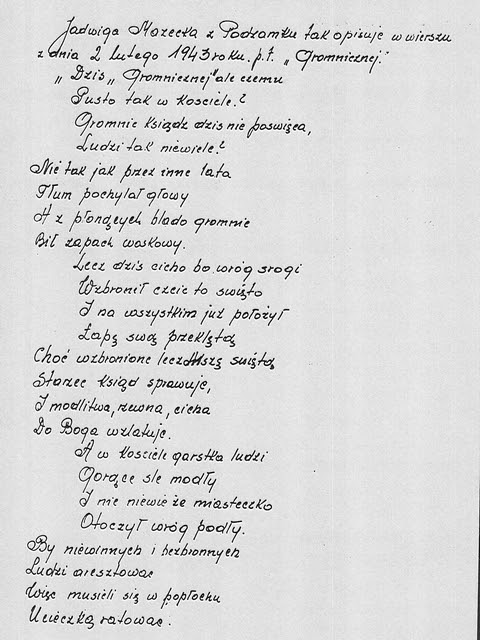 Jadwiga Mazecka z Podzamku tak opisuje w wierszu
z dnia 2 lutego 1943 roku. p.t. „Gromnicznej."
„Dziś„ Gromnicznej" ale czemu
Pusto tak w kościele?
Gromnic ksiądz dziś nie poświęca,
Ludzi tak niewiele?
Nie tak jak przez inne lata
Tłum pochylał głowy
A z płonących blado gromnic
Bił zapach woskowy.
Lecz dziś cicho bo wróg srogi
Wzbronił czcić to święto
I na wszystkim już położył
Łapę swą przeklętą
Choć wzbronione lecz Mszę świętą
Starzec ksiąd sprawuje,
I modlitwa, rzewna, cicha
Do Boga wzlatuje.
A w kościele garstka ludzi
Gorące śle modły
I nie niewie że miasteczko
Otoczył wróg podły.
By niewinnych i bezbronnych
Ludzi aresztować
Więc musieli się w popłochu
Ucieczką ratować.